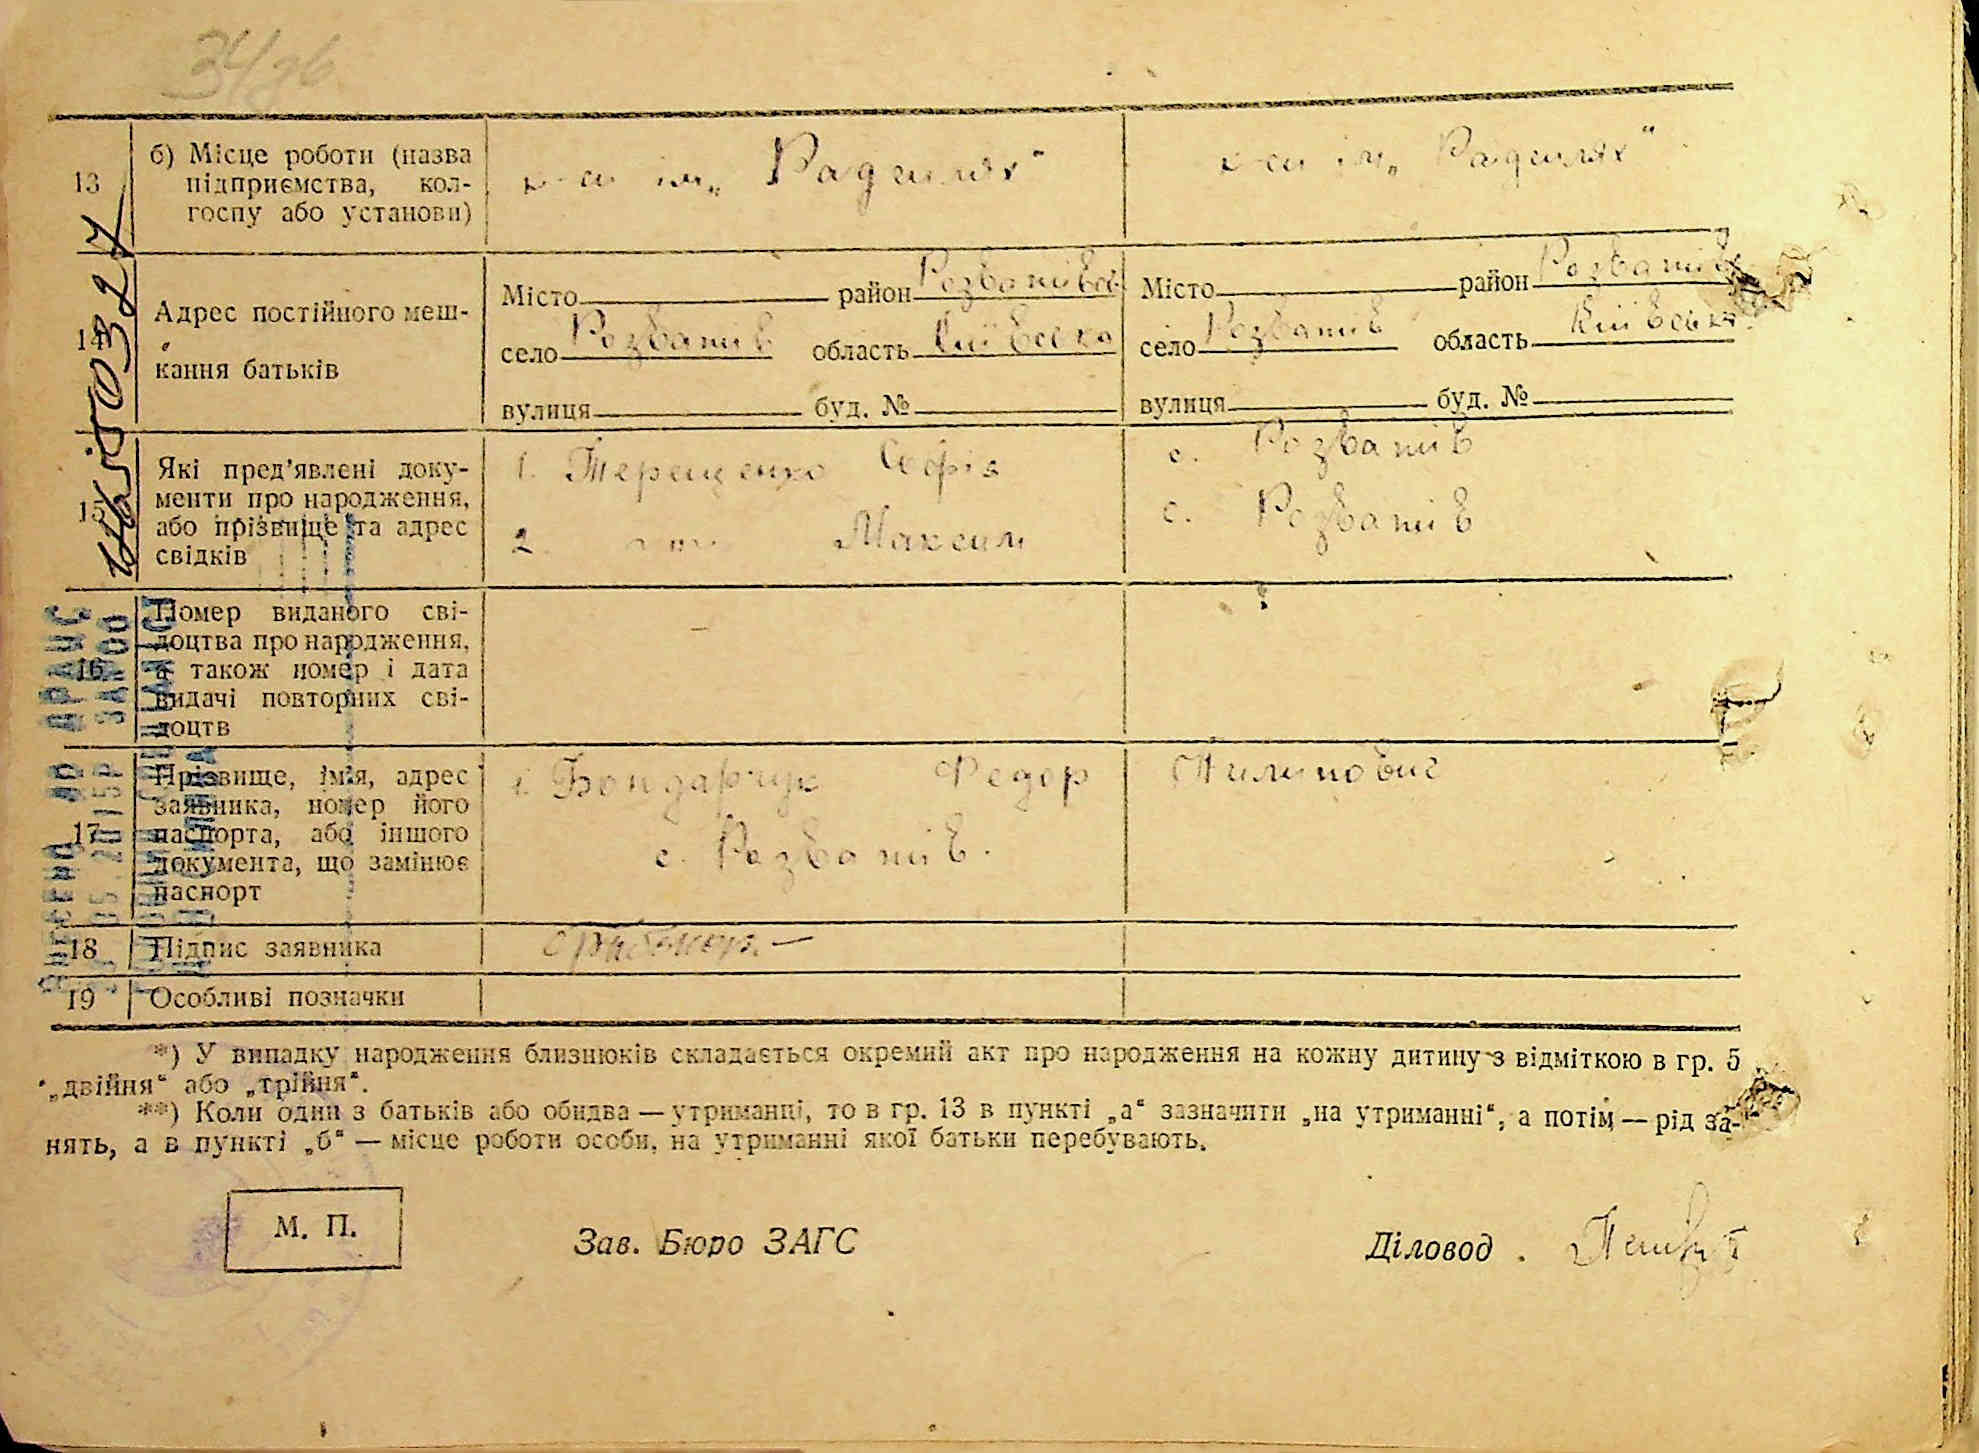 34 зв
13
б) Місце роботи (назва
підприємства, кол-
госпу або установи)
к-сп ім. „Радшлях“
к-сп ім. „Радшлях“
14
Адрес постійного меш-
кання батьків
Місто район Розватівськ
село Розватів область Київська
вулиця буд. №
Місто район Розватівськ
село Розватів область Київська
вулиця буд. №
15
Які пред’явлені доку-
менти про народження,
або прізвище та адрес
свідків
1. Терещенко Софія
с. Розватів
2. Максим
с. Розватів
16
Номер виданого сві-
доцтва про народження,
а також номер і дата
видачі повторних сві-
доцтв
17
Прізвище, ім’я, адрес
заявника, номер його
паспорта, або іншого
документа, що замінює
паспорт
1. Бондарчук Федор Пилипович
с. Розватів.
18
Підпис заявника
19
Особливі позначки
*) У випадку народження близнюків складається окремий акт про народження на кожну дитину з відміткою в гр. 5
„двійня“ або „трійня“.
**) Коли один з батьків або обидва — утриманці, то в гр. 13 в пункті „а“ зазначити „на утриманні“, а потім — рід за-
нять, а в пункті „б“ — місце роботи особи, на утриманні якої батьки перебувають.
М. П.
Зав. Бюро ЗАГС
Діловод